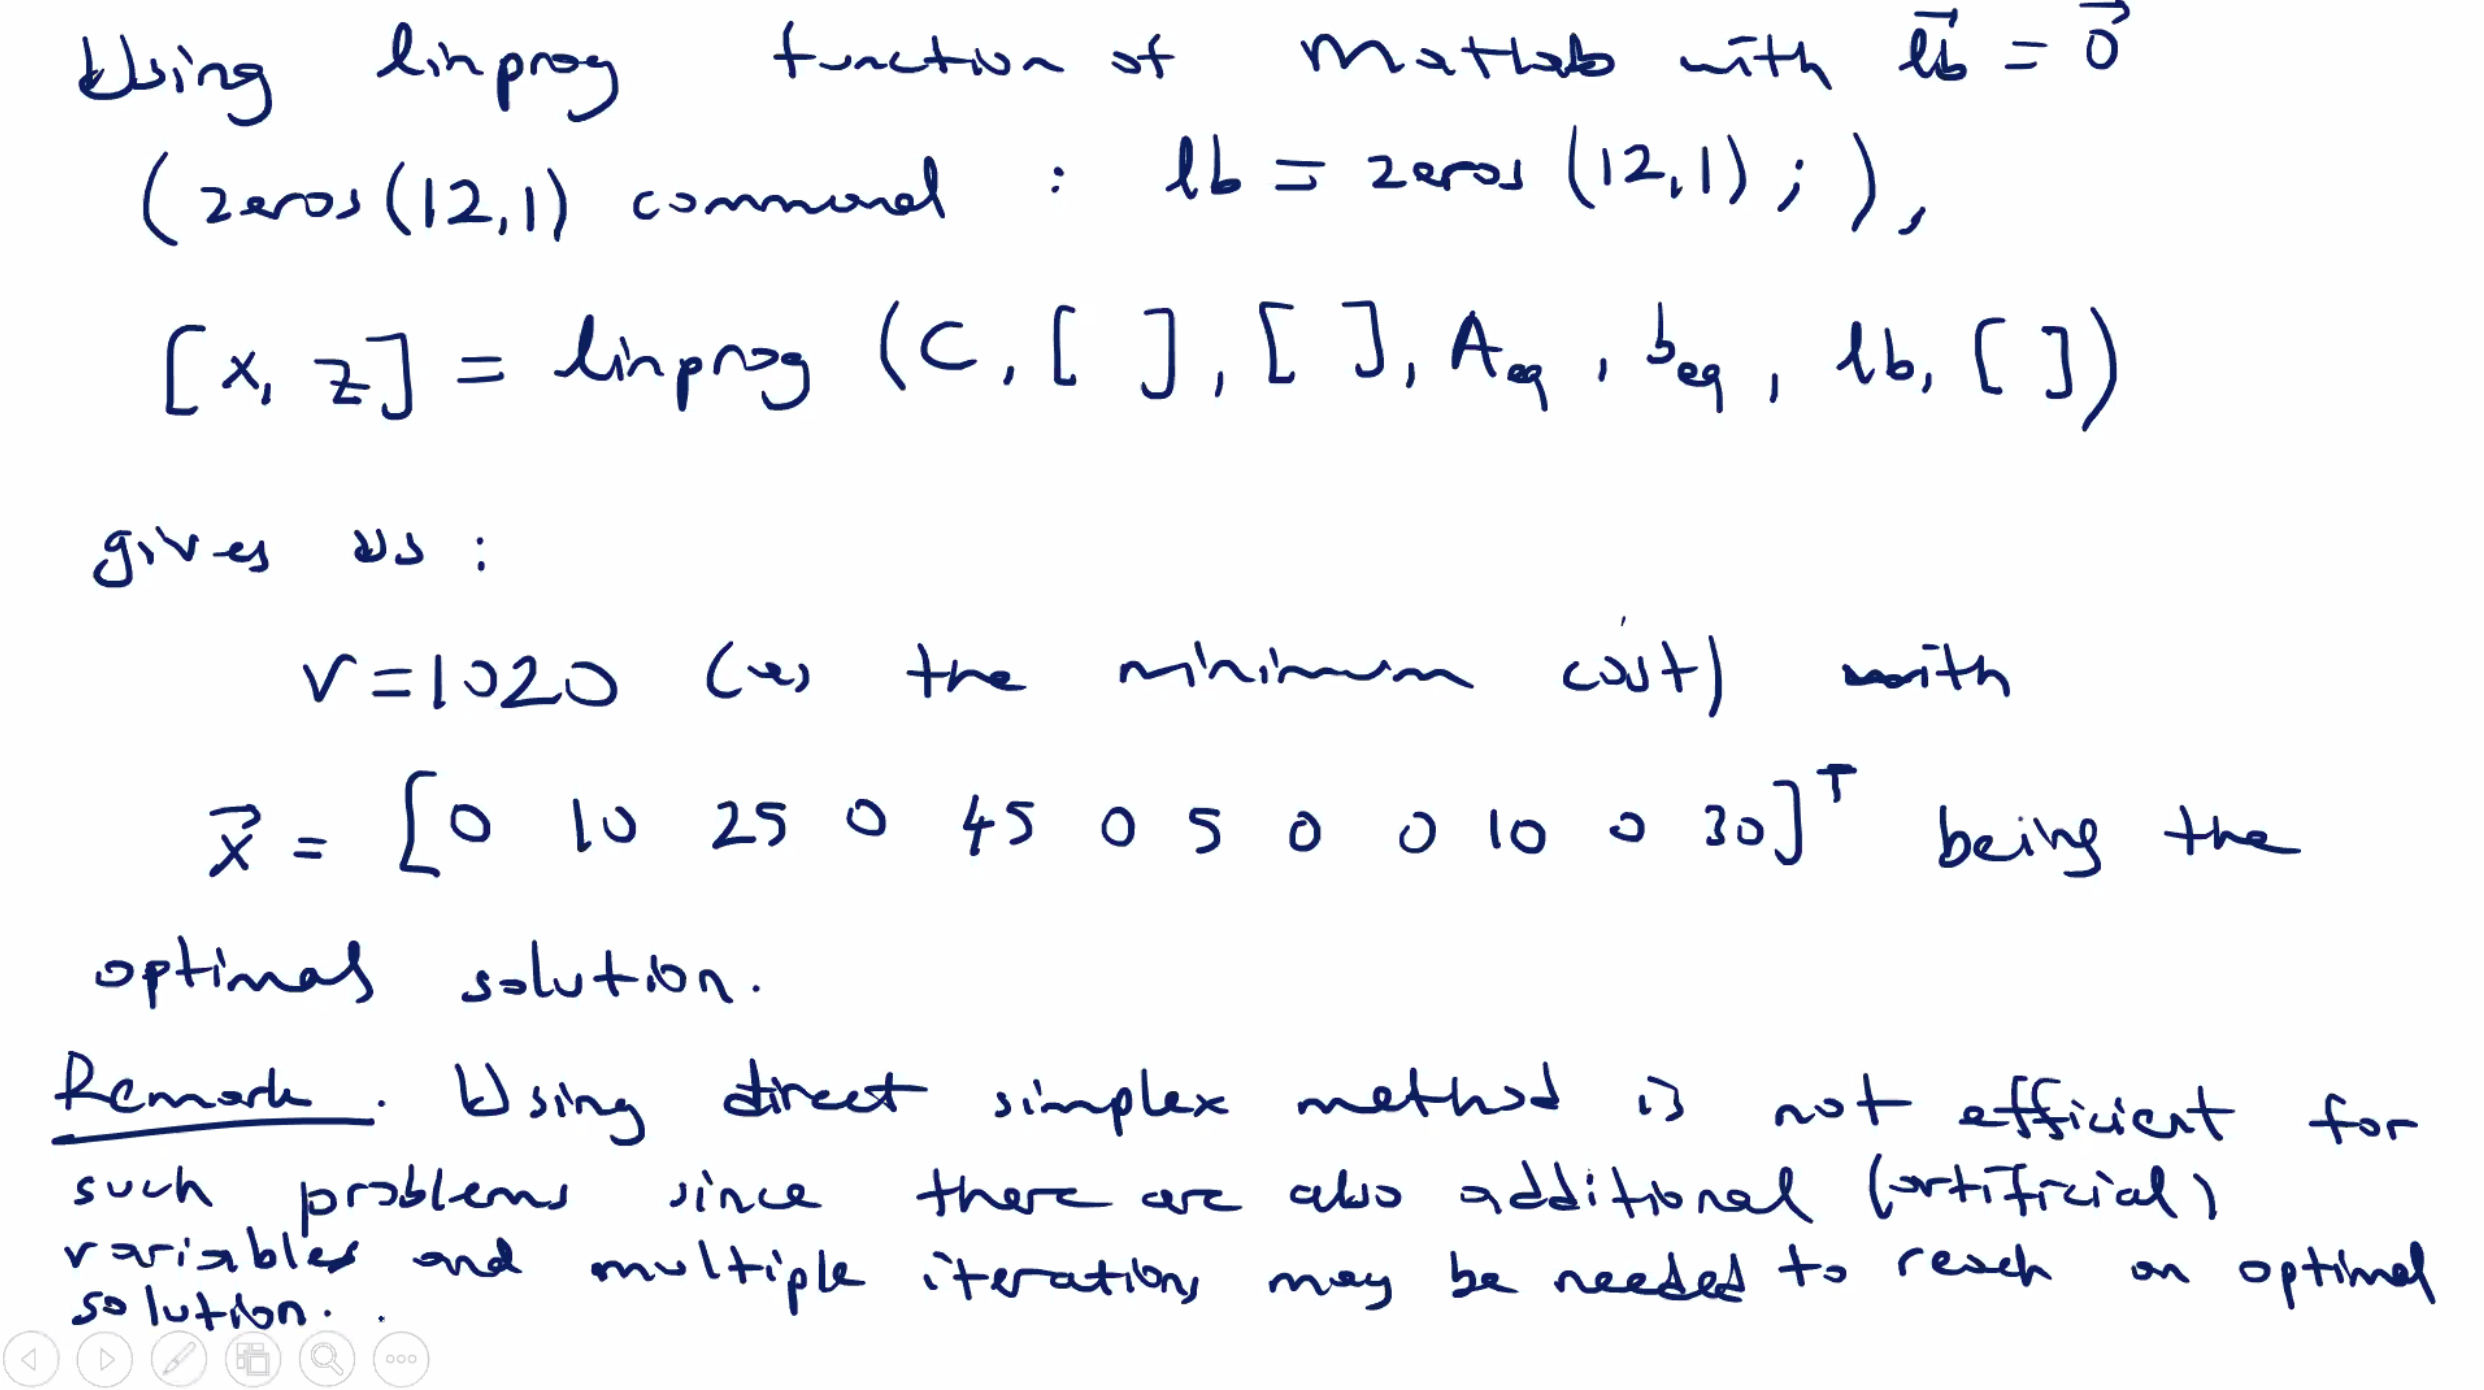 Using linprog function of Matlab with l⃗b = 0⃗
(zeros(12,1) command : lb = zeros(12,1);),
[x, z] = linprog (C, [ ], [ ], A_eq, b_eq, lb, [ ])
gives us :
v = 1020 (as the minimum cost) with
x⃗ = [0 10 25 0 45 0 5 0 0 10 0 30]^T being the
optimal solution.
Remark. Using direct simplex method is not efficient for
such problems since there are also additional (artificial)
variables and multiple iterations may be needed to reach an optimal
solution. .